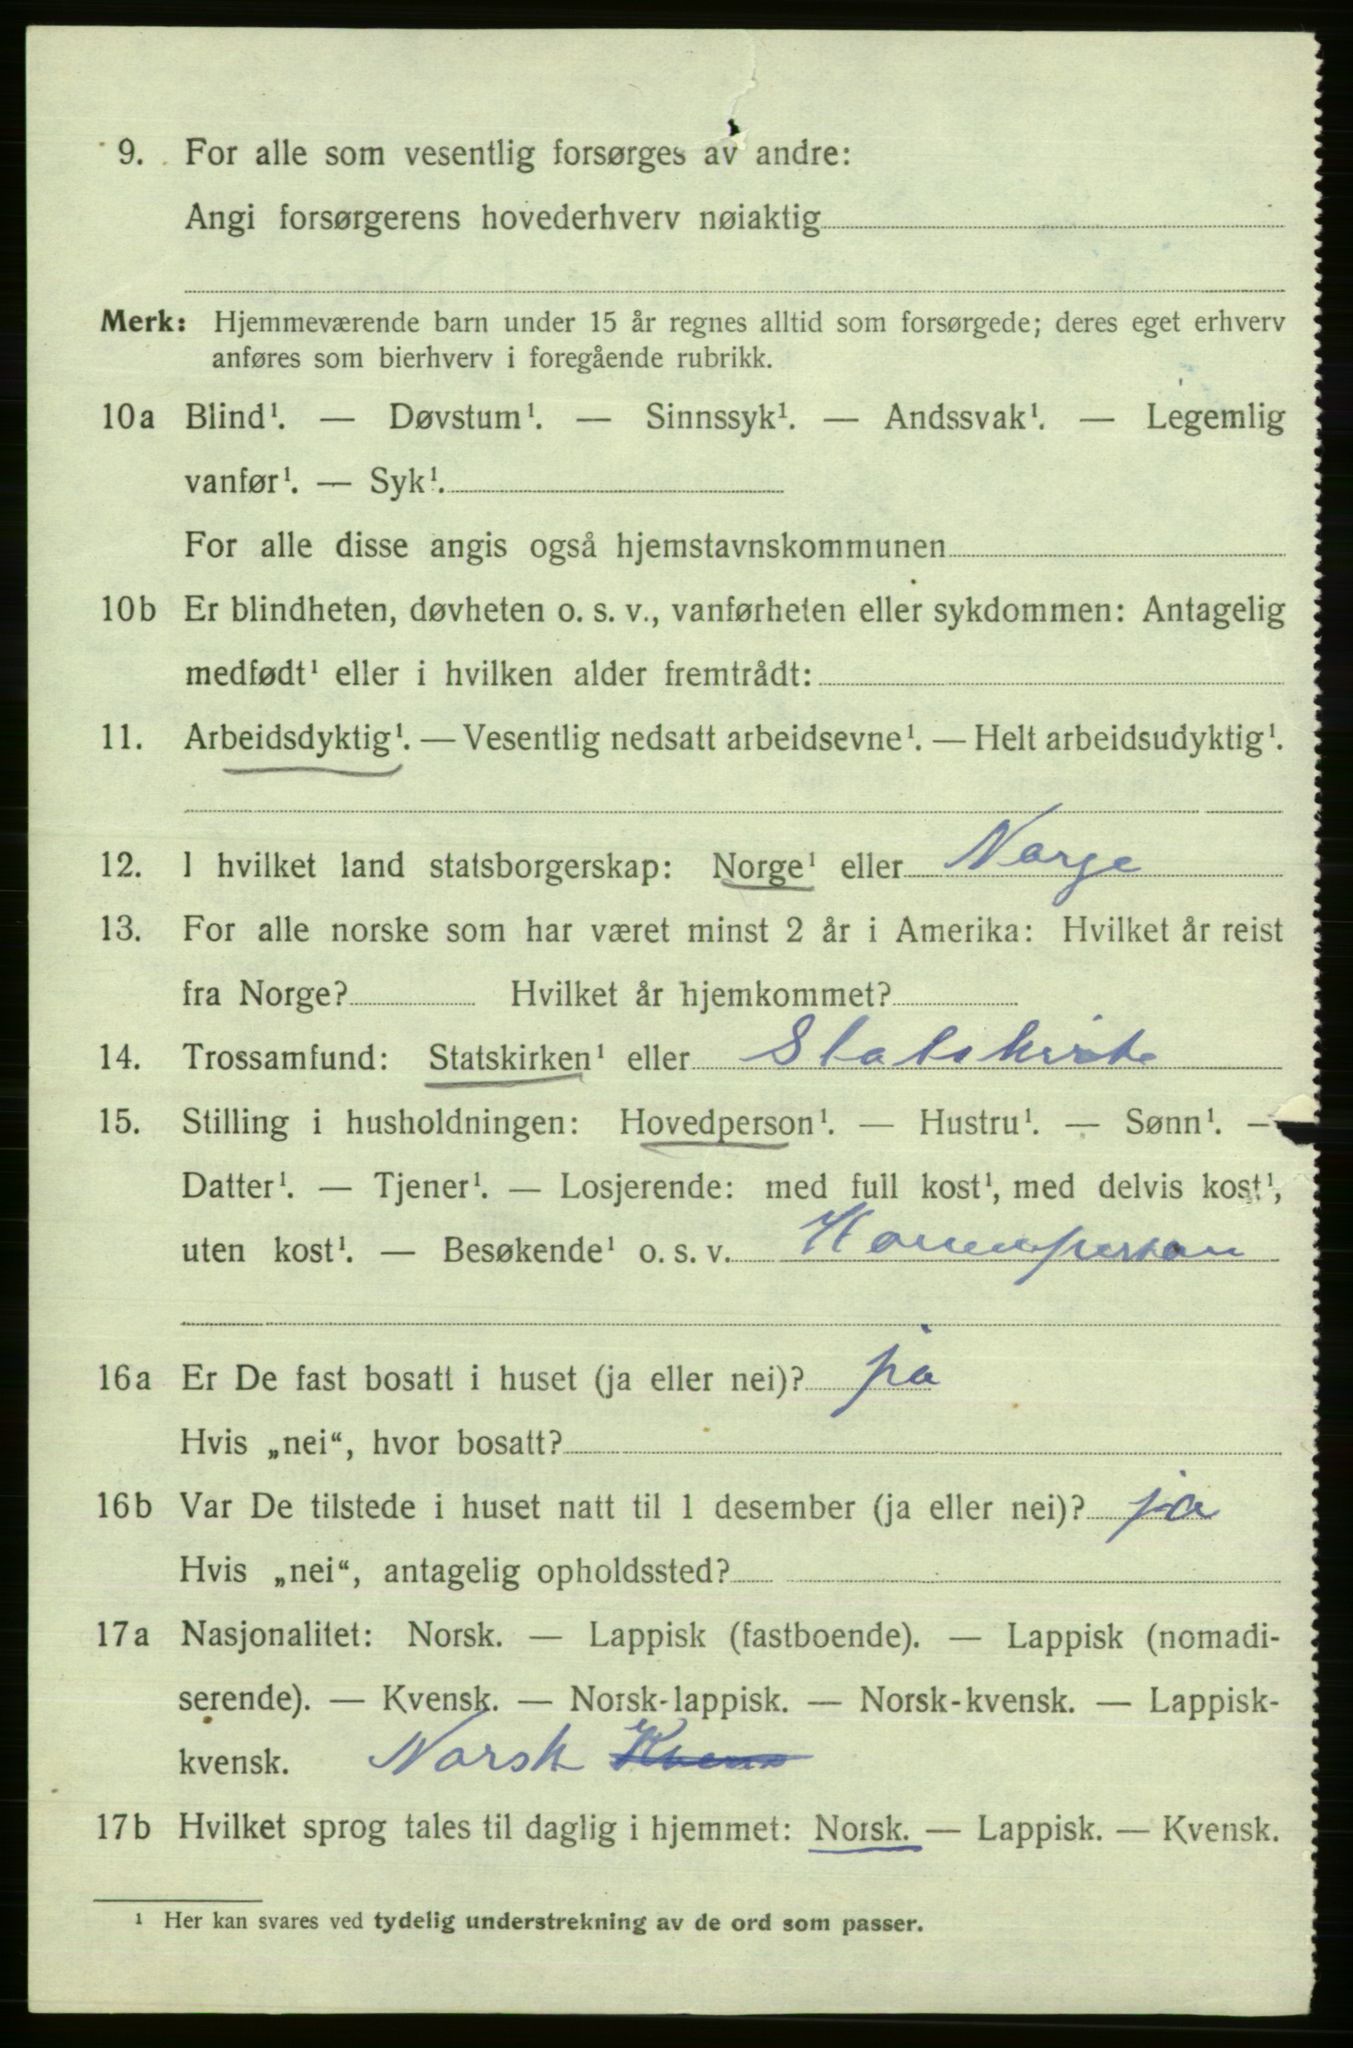 9. For alle som vesentlig forsørges av andre:
Angi forsørgerens hovederhverv nøiaktig
Merk: Hjemmeværende barn under 15 år regnes alltid som forsørgede; deres eget erhverv
anføres som bierhverv i foregående rubrikk.
10a Blind¹. — Døvstum¹. — Sinnssyk¹. — Andssvak¹. — Legemlig
vanfør¹. — Syk¹.
For alle disse angis også hjemstavnskommunen
10b Er blindheten, døvheten o. s. v., vanførheten eller sykdommen: Antagelig
medfødt¹ eller i hvilken alder fremtrådt:
11. Arbeidsdyktig¹. — Vesentlig nedsatt arbeidsevne¹. — Helt arbeidsudyktig¹.
12. I hvilket land statsborgerskap: Norge¹ eller Norge
13. For alle norske som har været minst 2 år i Amerika: Hvilket år reist
fra Norge? Hvilket år hjemkommet?
14. Trossamfund: Statskirken¹ eller Statskirke
15. Stilling i husholdningen: Hovedperson¹. — Hustru¹. — Sønn¹. —
Datter¹. — Tjener¹. — Losjerende: med full kost¹, med delvis kost¹,
uten kost¹. — Besøkende¹ o. s. v.
16a Er De fast bosatt i huset (ja eller nei)? ja
Hvis „nei“, hvor bosatt?
16b Var De tilstede i huset natt til 1 desember (ja eller nei)? ja
Hvis „nei“, antagelig opholdssted?
17a Nasjonalitet: Norsk. — Lappisk (fastboende). — Lappisk (nomadi-
serende). — Kvensk. — Norsk-lappisk. — Norsk-kvensk. — Lappisk-
kvensk. Norsk
17b Hvilket sprog tales til daglig i hjemmet: Norsk. — Lappisk. — Kvensk.
¹ Her kan svares ved tydelig understrekning av de ord som passer.